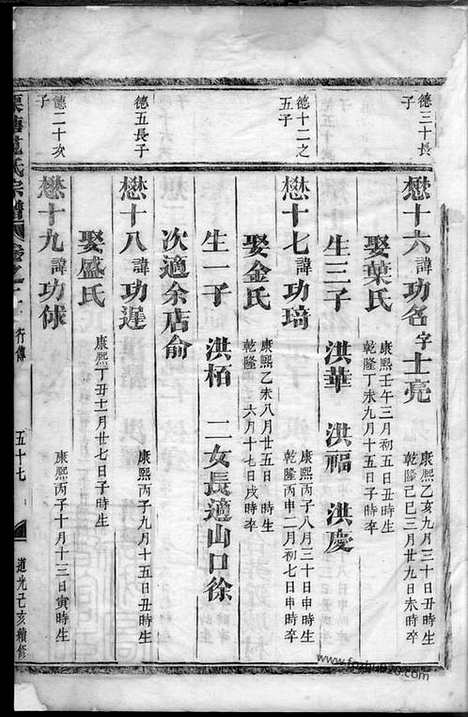 德三十長
子
懋十六諱功名字士亮
康熙乙亥九月三十日丑時生
乾隆己巳三月廿九日未時卒
娶葉氏
康熙壬午三月初五日丑時生
乾隆丁未九月十五日子時卒
生三子 洪華 洪福 洪慶
德十二之
五子
懋十七諱功琦
康熙丙子八月三十日申時生
乾隆丙申二月初七日申時卒
娶金氏
康熙乙未八月廿五日 時生
乾隆 六月十七日戌時卒
生一子 洪栢 二女長適山口徐
次適余店俞
德五長子
懋十八諱功遲
康熙丙子九月十五日丑時生
娶盛氏
康熙丁丑十一月廿七日子時生
德二十次
子
懋十九諱功俅
康熙丙子十月十三日寅時生
氏宗譜 卷之十 行傳 五十七 道光己亥續修